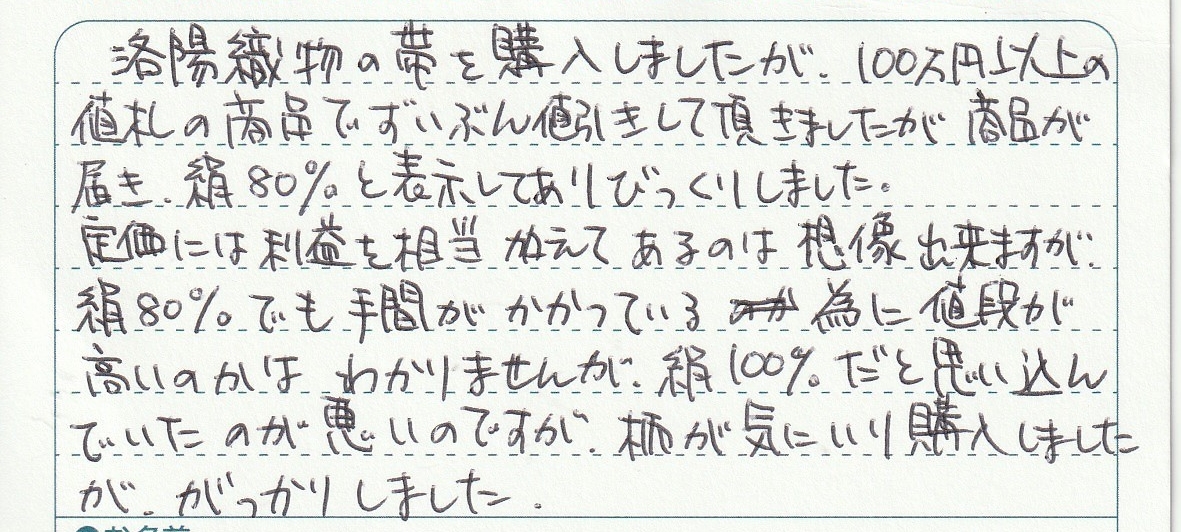 洛陽織物の帯を購入しましたが、100万円以上の
値札の商品でずいぶん値引きして頂きましたが商品が
届き、絹80％と表示してありびっくりしました。
定価には利益を相当加えてあるのは想像出来ますが、
絹80％でも手間がかかっている為に値段が
高いのかはわかりませんが、絹100％だと思い込ん
でいたのが悪いのですが、柄が気にいり購入しました
が、がっかりしました。